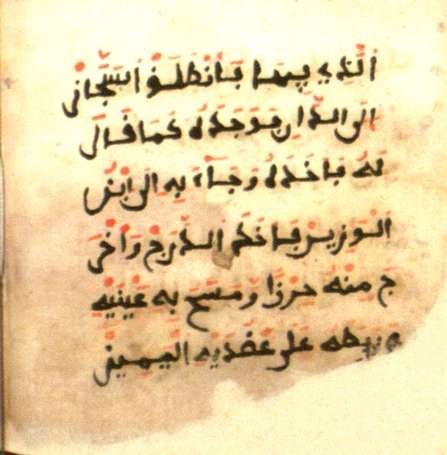 الَّذِي فيها فَانْطَلَقَ السَّجَّانُ
الى الدَّارِ فَوَجَدَهُ كَمَا قَالَ
لَهُ فَاخَذَهُ وَجَاءَ بِهِ الى ابْنِ
الْوَزِيرِ فَاخَذَ الدَّرْجَ وَاخْرَ
ج مِنْهُ حِرْزًا وَمَسَحَ بِهِ عَيْنَيْهِ
وربطه عَلَى عَضُدَيْهِ الْيَمِينِ